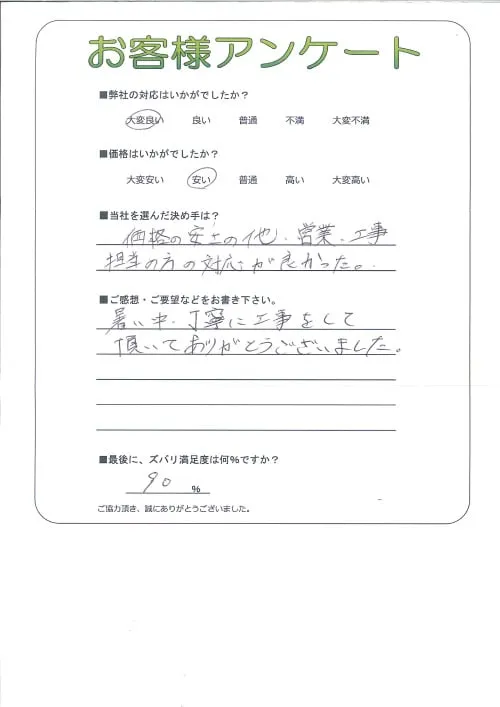 お客様アンケート
■弊社の対応はいかがでしたか？
大変良い 良い 普通 不満 大変不満
■価格はいかがでしたか？
大変安い 安い 普通 高い 大変高い
■当社を選んだ決め手は？
価格の安さの他、営業、工事
担当の方の対応が良かった。
■ご感想・ご要望などをお書き下さい。
暑い中、丁寧に工事をして
頂いてありがとうございました。
■最後に、ズバリ満足度は何%ですか？
90 %
ご協力頂き、誠にありがとうございました。